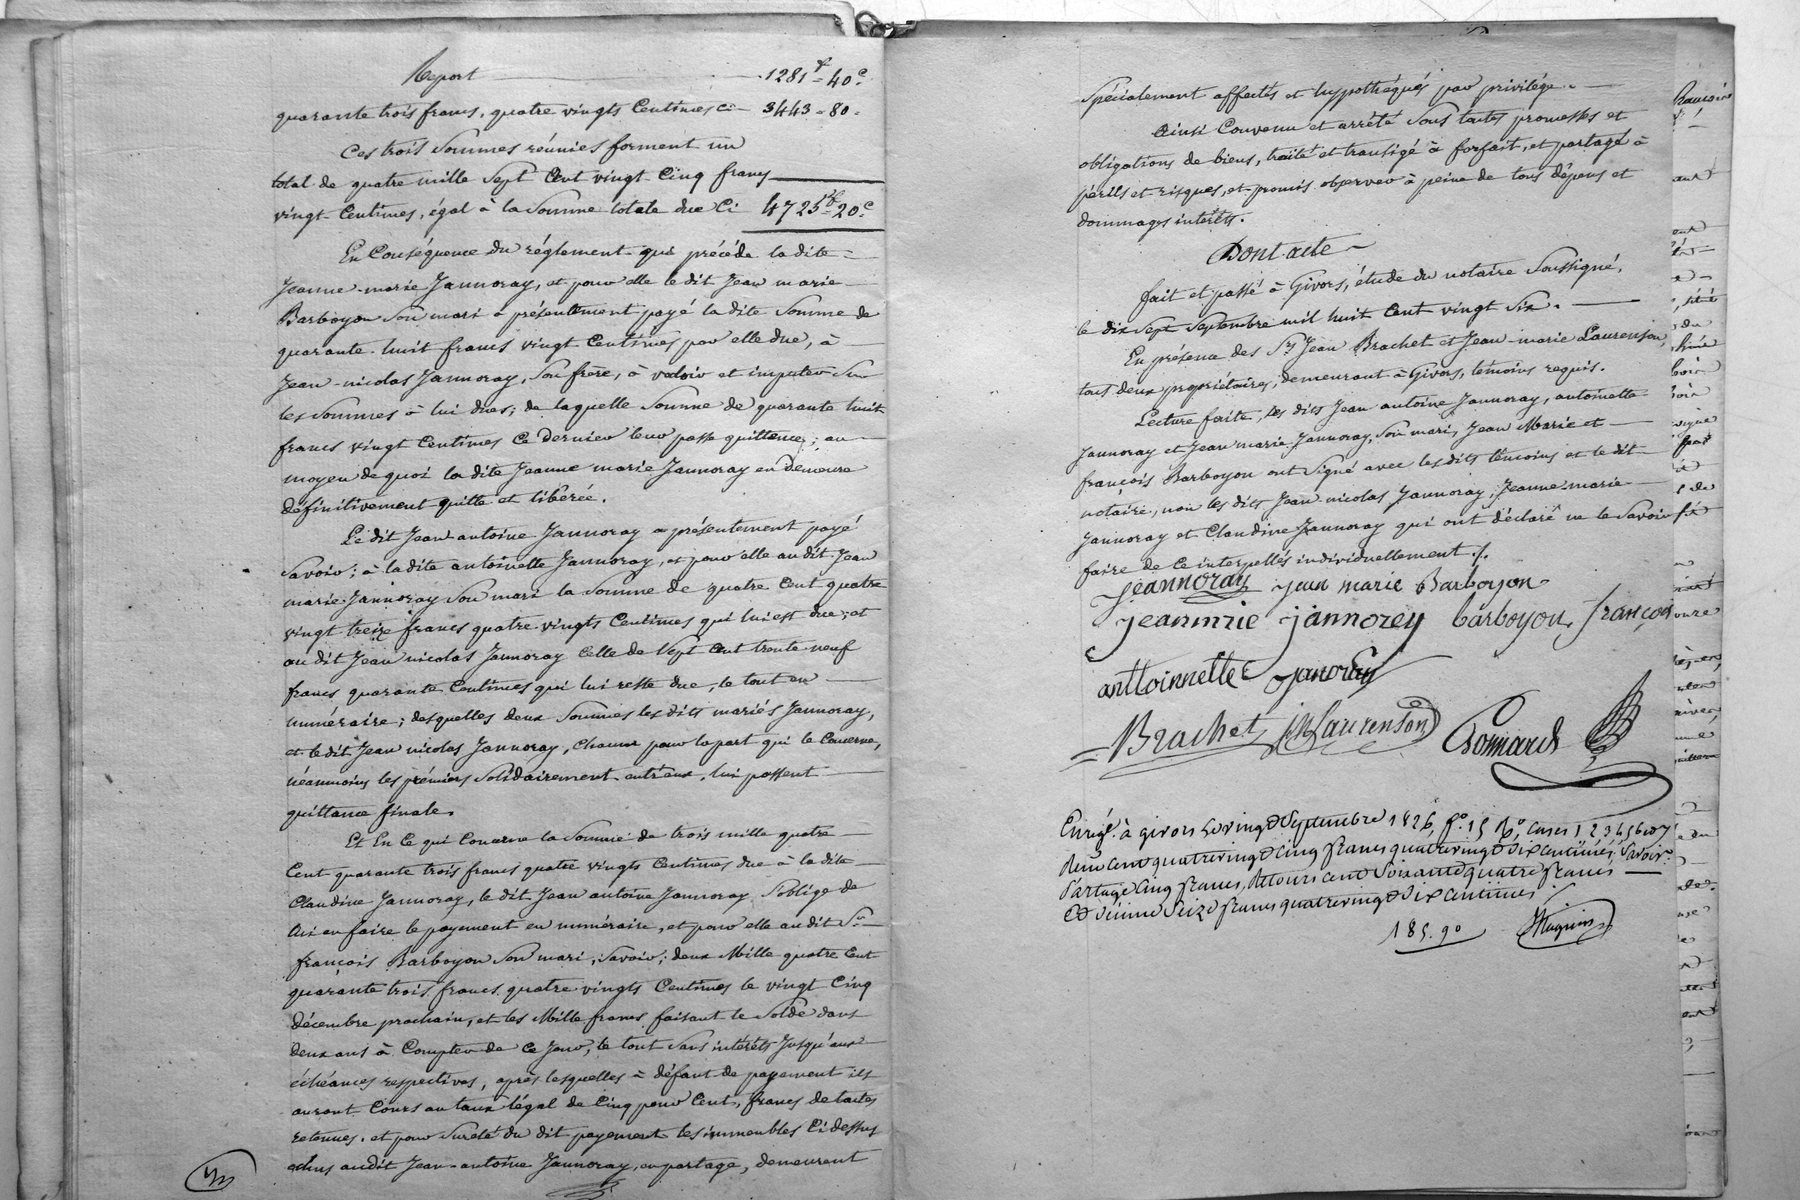 Report 1281f-40c
quarante trois francs, quatre vingts Centimes Ci 3443-80
Ces trois Sommes réunies forment un
total de quatre mille Sept Cent vingt Cinq francs
vingt Centimes, égal à la Somme totale due Ci 4725f-20c
En Conséquence du réglement qui précéde la dite
Jeanne-marie Jannoray, et pour elle le dit Jean marie
Barboyon Son mari a présentement payé la dite Somme de
quarante-huit francs vingt Centimes par elle due, à
Jean-nicolas Jannoray, Son frère, à valoir et imputer Sur
les Sommes à lui dues; de laquelle Somme de quarante huit
francs vingt Centimes Ce dernier leur passe quittance; au
moyen de quoi la dite Jeanne marie Jannoray en demeure
définitivement quitte et libérée.
Le dit Jean-antoine Jannoray a présentement payé
Savoir; à la dite antoinette Jannoray, et pour elle au dit Jean
marie Jannoray Son mari la Somme de quatre Cent quatre
vingt treize francs quatre-vingts Centimes qui lui est due; et
au dit Jean nicolas Jannoray Celle de Sept Cent trente-neuf
francs quarante Centimes qui lui reste due, le tout en
numéraire; desquelles deux Sommes les dits mariés Jannoray,
et le dit Jean nicolas Jannoray, Chacun pour la part qui le Concerne,
néanmoins les prémiers Solidairement entr'eux, lui passent
quittance finale.
Et En Ce qui Concerne la Somme de trois mille quatre
Cent quarante trois francs quatre vingts Centimes due à la dite
Claudine Jannoray, le dit Jean antoine Jannoray S'oblige de
lui en faire le payement en numéraire, et pour elle au dit Sr.
françois Barboyon Son mari, Savoir; deux Mille quatre Cent
quarante trois francs quatre-vingts Centimes le vingt Cinq
décembre prochain, et les Mille francs faisant le Solde dans
deux ans à Compter de Ce Jour, le tout Sans intérêts Jusqu'aux
échéances respectives, après lesquelles à défaut de payement ils
auront Cours au taux légal de Cinq pour Cent, francs de toutes
retenues. et pour Sureté du dit payement les immeubles Ci dessus
échus audit Jean-antoine Jannoray, en partage, demeurent
Spécialement affectés et hypothéqués par privilége.
Ainsi Convenu et arrêté Sous toutes promesses et
obligations de biens, traité et transigé à forfait, et partagé à
périls et risques, et promis observer à peine de tous dépens et
dommages intérêts.
Dont acte
fait et passé à Givors, étude du notaire Soussigné,
le dix Sept Septembre mil huit Cent vingt Six.
En présence des Srs Jean Brachet et Jean-marie Laurenson,
tous deux propriétaires, demeurant à Givors, témoins requis.
Lecture faite, les dits Jean antoine Jannoray, antoinette
Jannoray et Jean marie Jannoray, Son mari, Jean Marie et
françois Barboyon ont Signé avec les dits témoins et le dit
notaire, non les dits Jean nicolas Jannoray, Jeanne-marie
Jannoray et Claudine Jannoray qui ont déclaré ne le Savoir
faire de Ce interpellés individuellement./.
Jeannoray jean marie Barboyon
jeanmrie jannorey barboyon françois
anttoinnette janoray
Brachet JM Laurenson Bonnard
Enregé. à givors le vingt Septembre 1826, fo. 15 Ro. cases 1 2 3 4 5 6 et 7
Reçu cent quatrevingt Cinq francs quatrevingt dix centimes, Savoir:
Partage Cinq francs, Retours cent Soixante quatre francs
Et dixime Seize francs quatrevingt dix Centimes
185.90